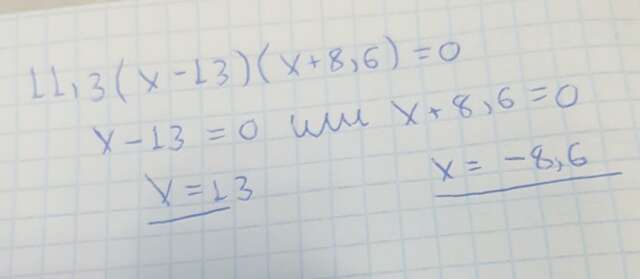 11,3(x-13)(x+8,6)=0
x-13=0 или x+8,6=0
x=13 x=-8,6